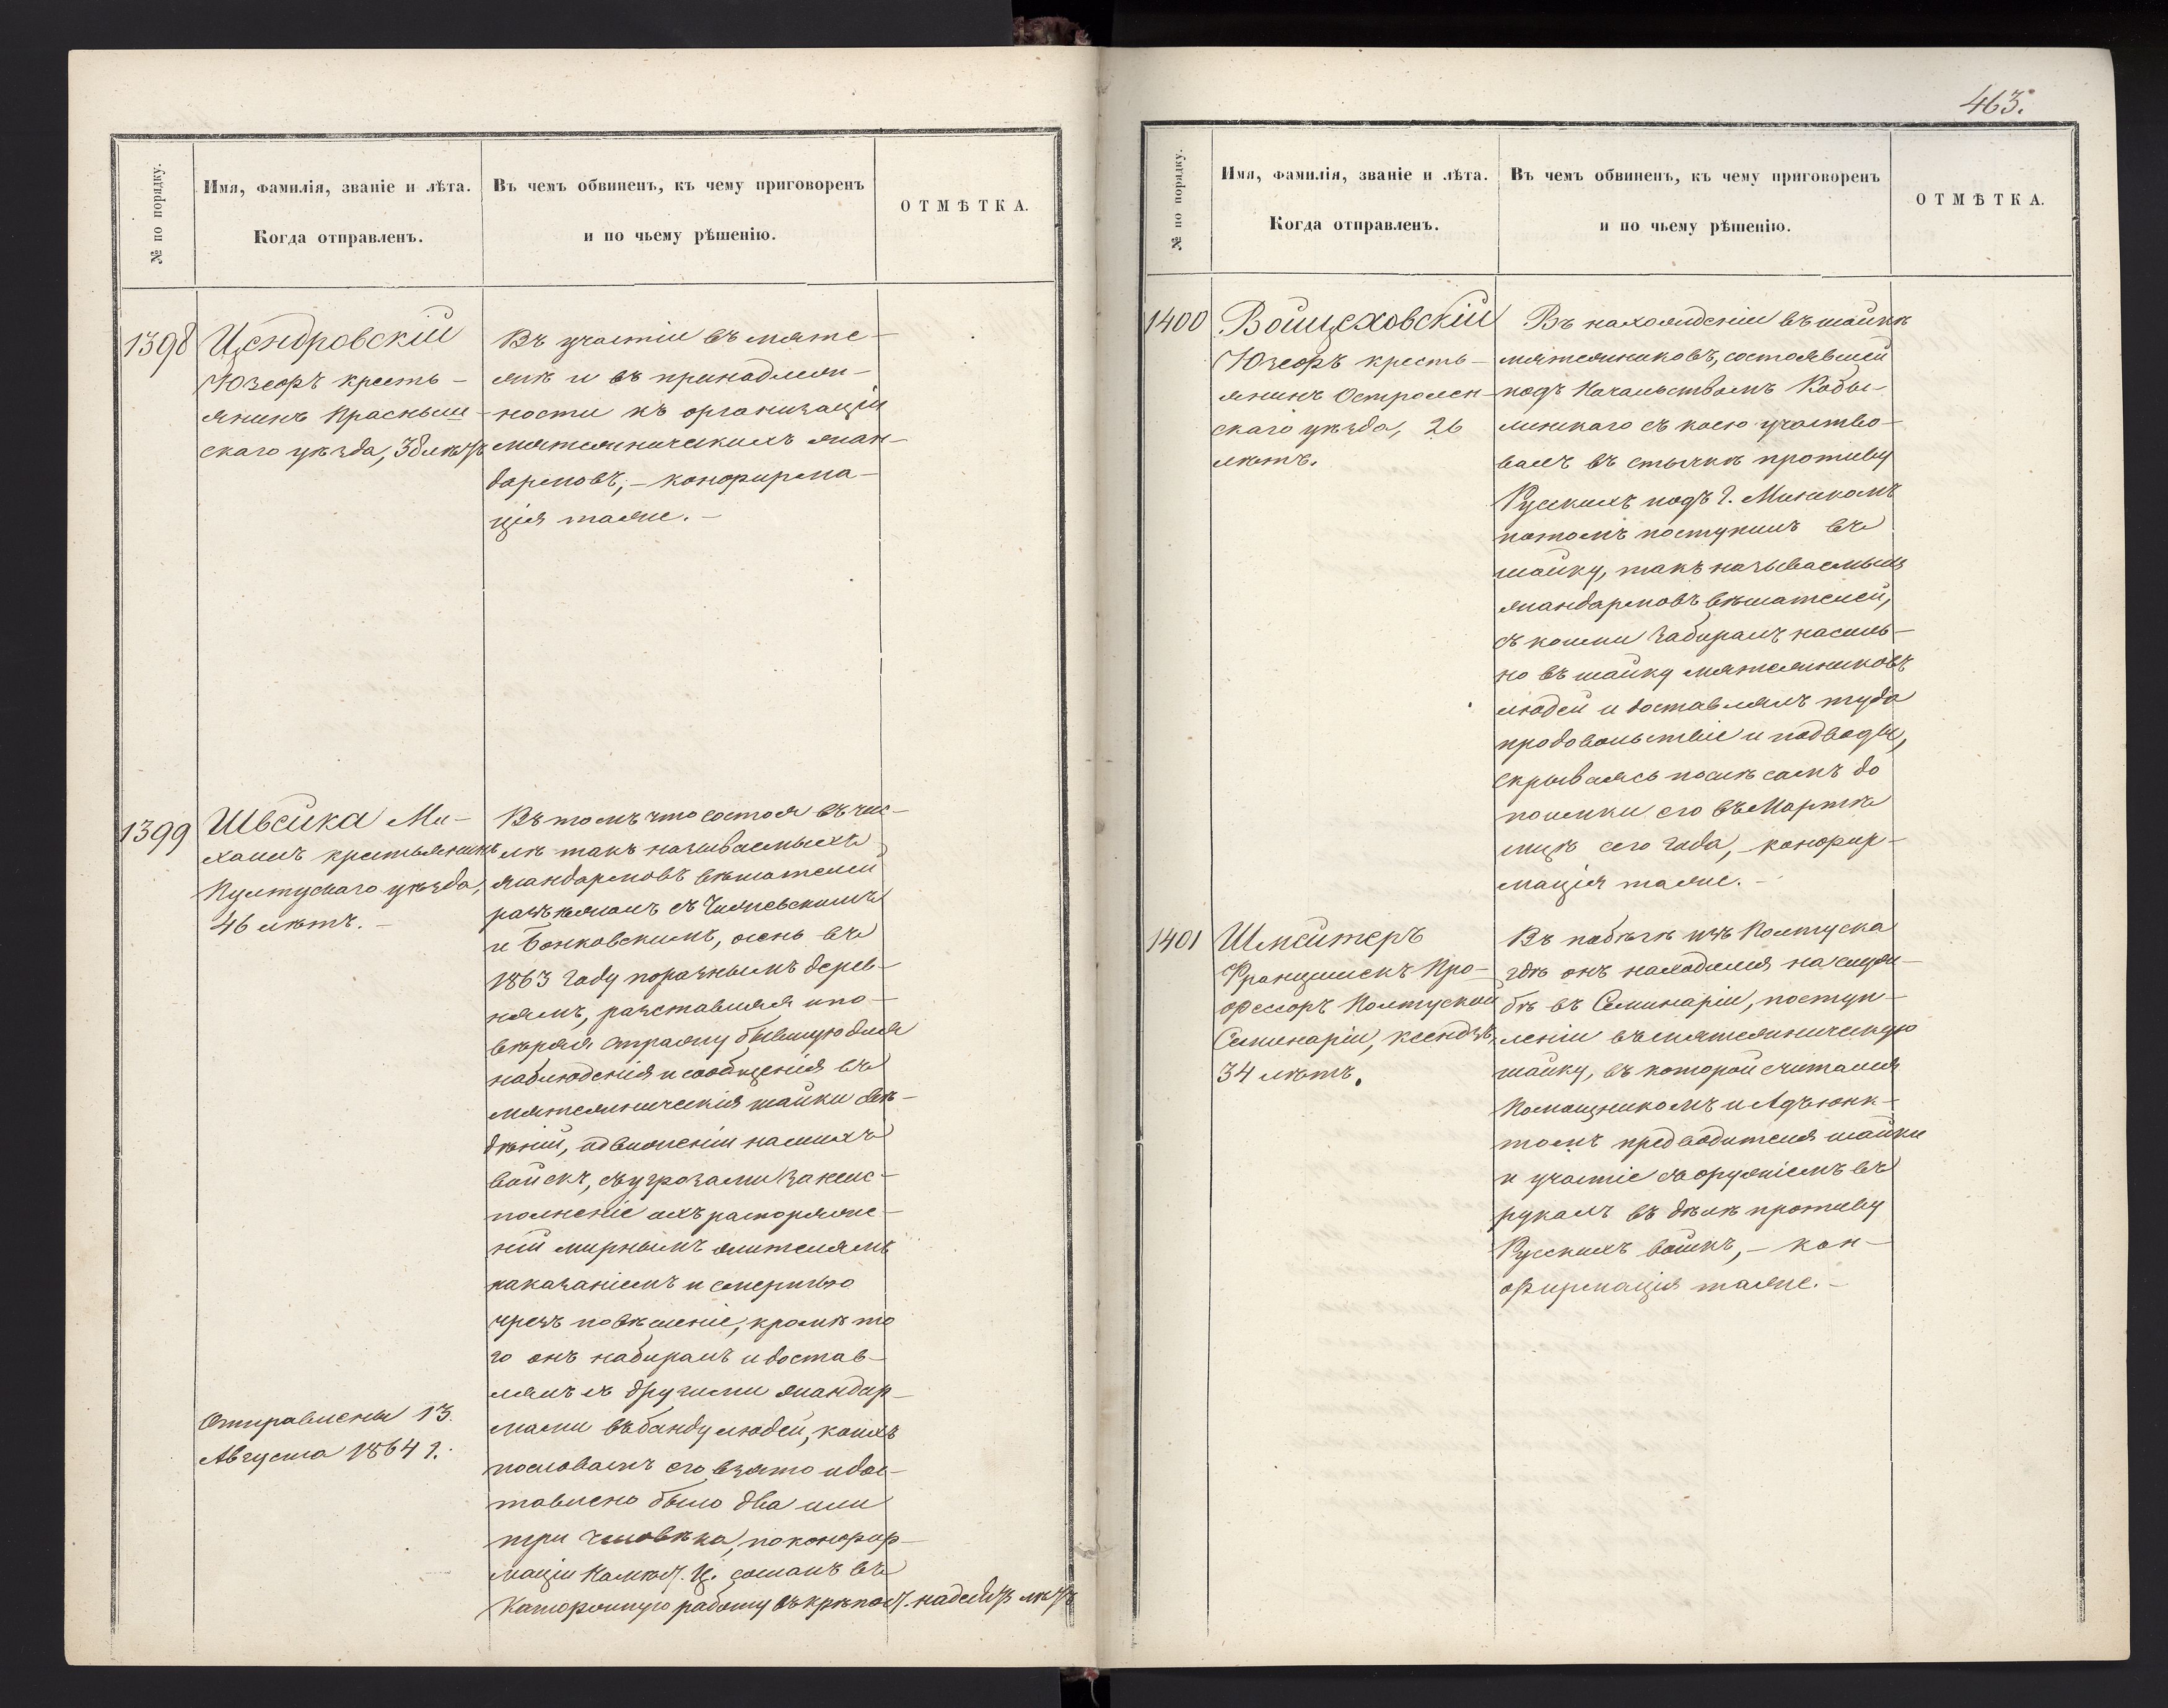 463.
№ по порядку.
Имя, фамилія, званіе и лѣта.
Когда отправленъ.
Въ чемъ обвиненъ, къ чему приговоренъ
и по чьему рѣшенію.
ОТМѢТКА.
1398
Цендровскій
Юзефъ кресть-
янинъ Прасныш-
скаго уѣзда, лѣтъ
Въ участіи въ мяте-
жѣ и въ принадлеж-
ности къ организаціи
мятежническихъ жан-
дармовъ, - конфирма-
ція таже. -
1399
Швейка Ми-
хаилъ крестьянинъ
Пултускаго уѣзда,
46 лѣтъ. -
Отправлены 13.
Августа 1864 г.
Въ томъ что состоя въ чис-
лѣ такъ называемыхъ
жандармовъ вѣшателей
разъѣзжалъ съ
и Бонковскимъ, осень въ
1863 году по разнымъ дерев-
нямъ, разставляя и по-
вѣряя стражу бывшую для
наблюденія и сообщенія въ
мятежническія шайки свѣ-
дѣній, о движеніи нашихъ
войскъ, съ угрозами за неис-
полненіе ихъ распоряже-
ній мирнымъ жителямъ
наказаніемъ и смертью
чрезъ повѣшеніе, кромѣ то
го онъ набиралъ и достав-
лялъ съ другими жандар-
мами въ банду людей, коихъ
по словамъ его взято и дос-
тавлено было два или
три человѣка, по конфир-
маціи Ц. сосланъ въ
Каторжную работу въ крѣпост. на десять лѣтъ
№ по порядку.
Имя, фамилія, званіе и лѣта.
Когда отправленъ.
Въ чемъ обвиненъ, къ чему приговоренъ
и по чьему рѣшенію.
ОТМѢТКА.
1400
Войцеховскій
Юзефъ кресть-
янинъ Остролен-
скаго уѣзда, 26
лѣтъ.
Въ нахожденіи въ шайкѣ
мятежниковъ, состоявшей
подъ Начальствомъ Кобы-
линскаго съ коею участво-
валъ въ стычкѣ противу
Русскихъ подъ г. Минскомъ
потомъ поступилъ въ
шайку, такъ называемыхъ
жандармовъ вѣшателей,
съ коими забиралъ насиль-
но въ шайку мятежниковъ
людей и доставлялъ туда
продовольствіе и подводы,
скрываясь послѣ самъ до
поимки его въ Мартѣ
мцѣ сего года, - конфир-
мація таже. -
1401
Шмейтеръ
Францишекъ Про-
фессоръ Полтуской
Семинаріи, ксендзъ,
34 лѣтъ.
Въ побѣгѣ изъ Полтуска
гдѣ онъ находился на служ-
бѣ въ Семинаріи, поступ-
леніи въ мятежническую
шайку, въ которой считался
Помощникомъ и Адъюнк-
томъ предводителя шайки
и участіе съ оружіемъ въ
рукахъ въ дѣлѣ противу
Русскихъ войскъ, - кон-
фирмація таже. -